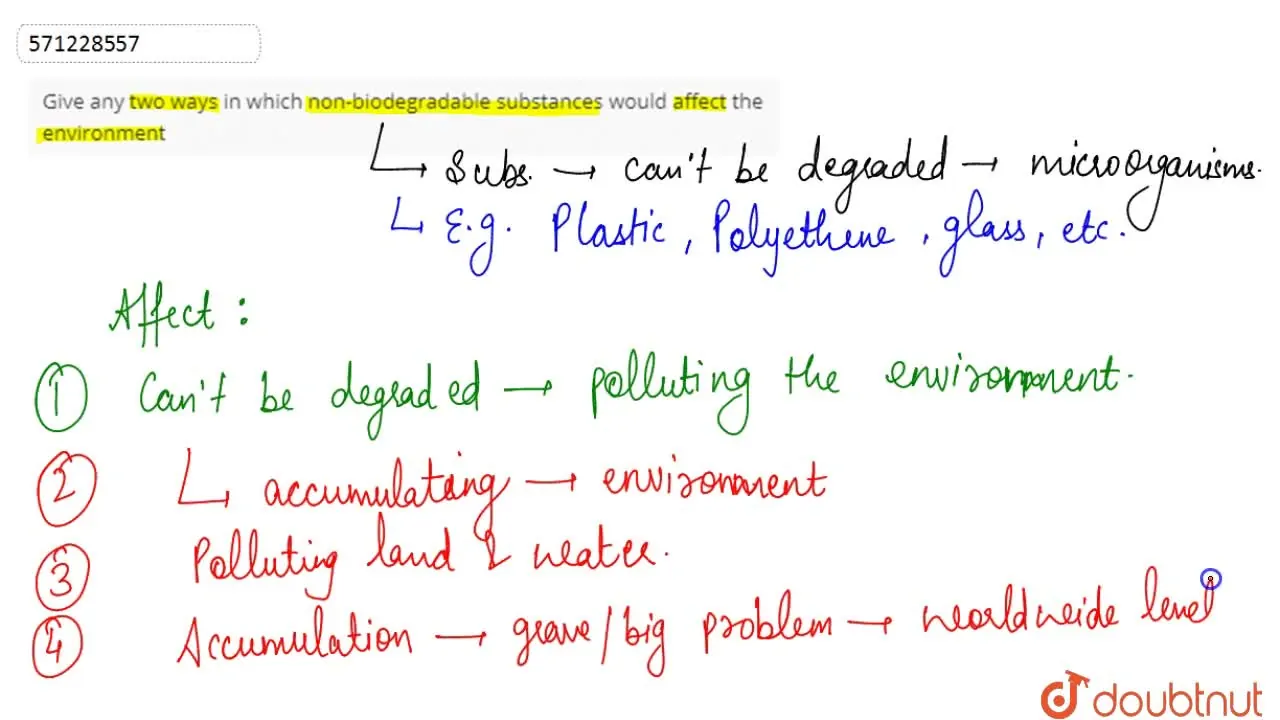 571228557
Give any two ways in which non-biodegradable substances would affect the
environment
Subs. → can't be degraded → microorganisms.
E.g. Plastic, Polyethene, glass, etc.
Affect :
1 Can't be degraded → polluting the environment.
2 accumulating → environment
3 Polluting land & water.
4 Accumulation → grave/big problem → worldwide level
doubtnut